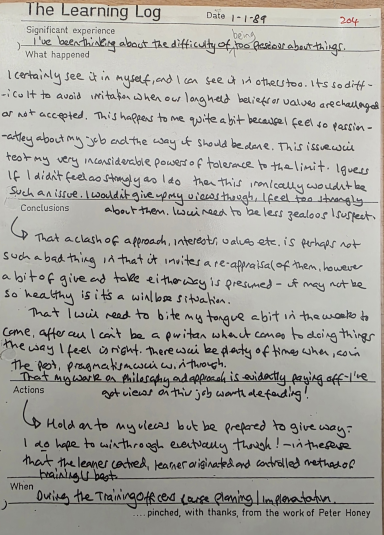 The Learning Log
Date 1-1-89
204
Significant experience
I've been thinking about the difficulty of being too passionate about things.
What happened
I certainly see it in myself, and I can see it in others too. It's so diff-
-icult to avoid irritation when our long held beliefs or values are challenged
or not accepted. This happens to me quite a bit because I feel so passion-
-ately about my job and the way it should be done. This issue will
test my very inconsiderable powers of tolerance to the limit. I guess
If I didn't feel as strongly as I do then this ironically wouldn't be
Such an issue. I wouldn't give up my views though. I feel too strongly
about them. I will need to be less zealous I suspect.
Conclusions
That a clash of approach, interests, values etc. is perhaps not
such a bad thing in that it invites a re-appraisal of them, however
a bit of give and take either way is presumed - it may not be
so healthy is it's a win lose situation.
That I will need to bite my tongue a bit in the weeks to
come, after all I can't be a puritan when it comes to doing things
the way I feel is right. there will be plenty of times when, as in
the past, pragmatism will win through.
That my work on philosophy and approach is evidently paying off - I've
got views on this job worth defending!
Actions
Hold on to my views but be prepared to give way -
I do hope to win through eventually though! - in the sense
that the learner centred, learner originated and controlled method of
training is best
When
During the Training Officers course planning / implementation.
....pinched, with thanks, from the work of Peter Honey